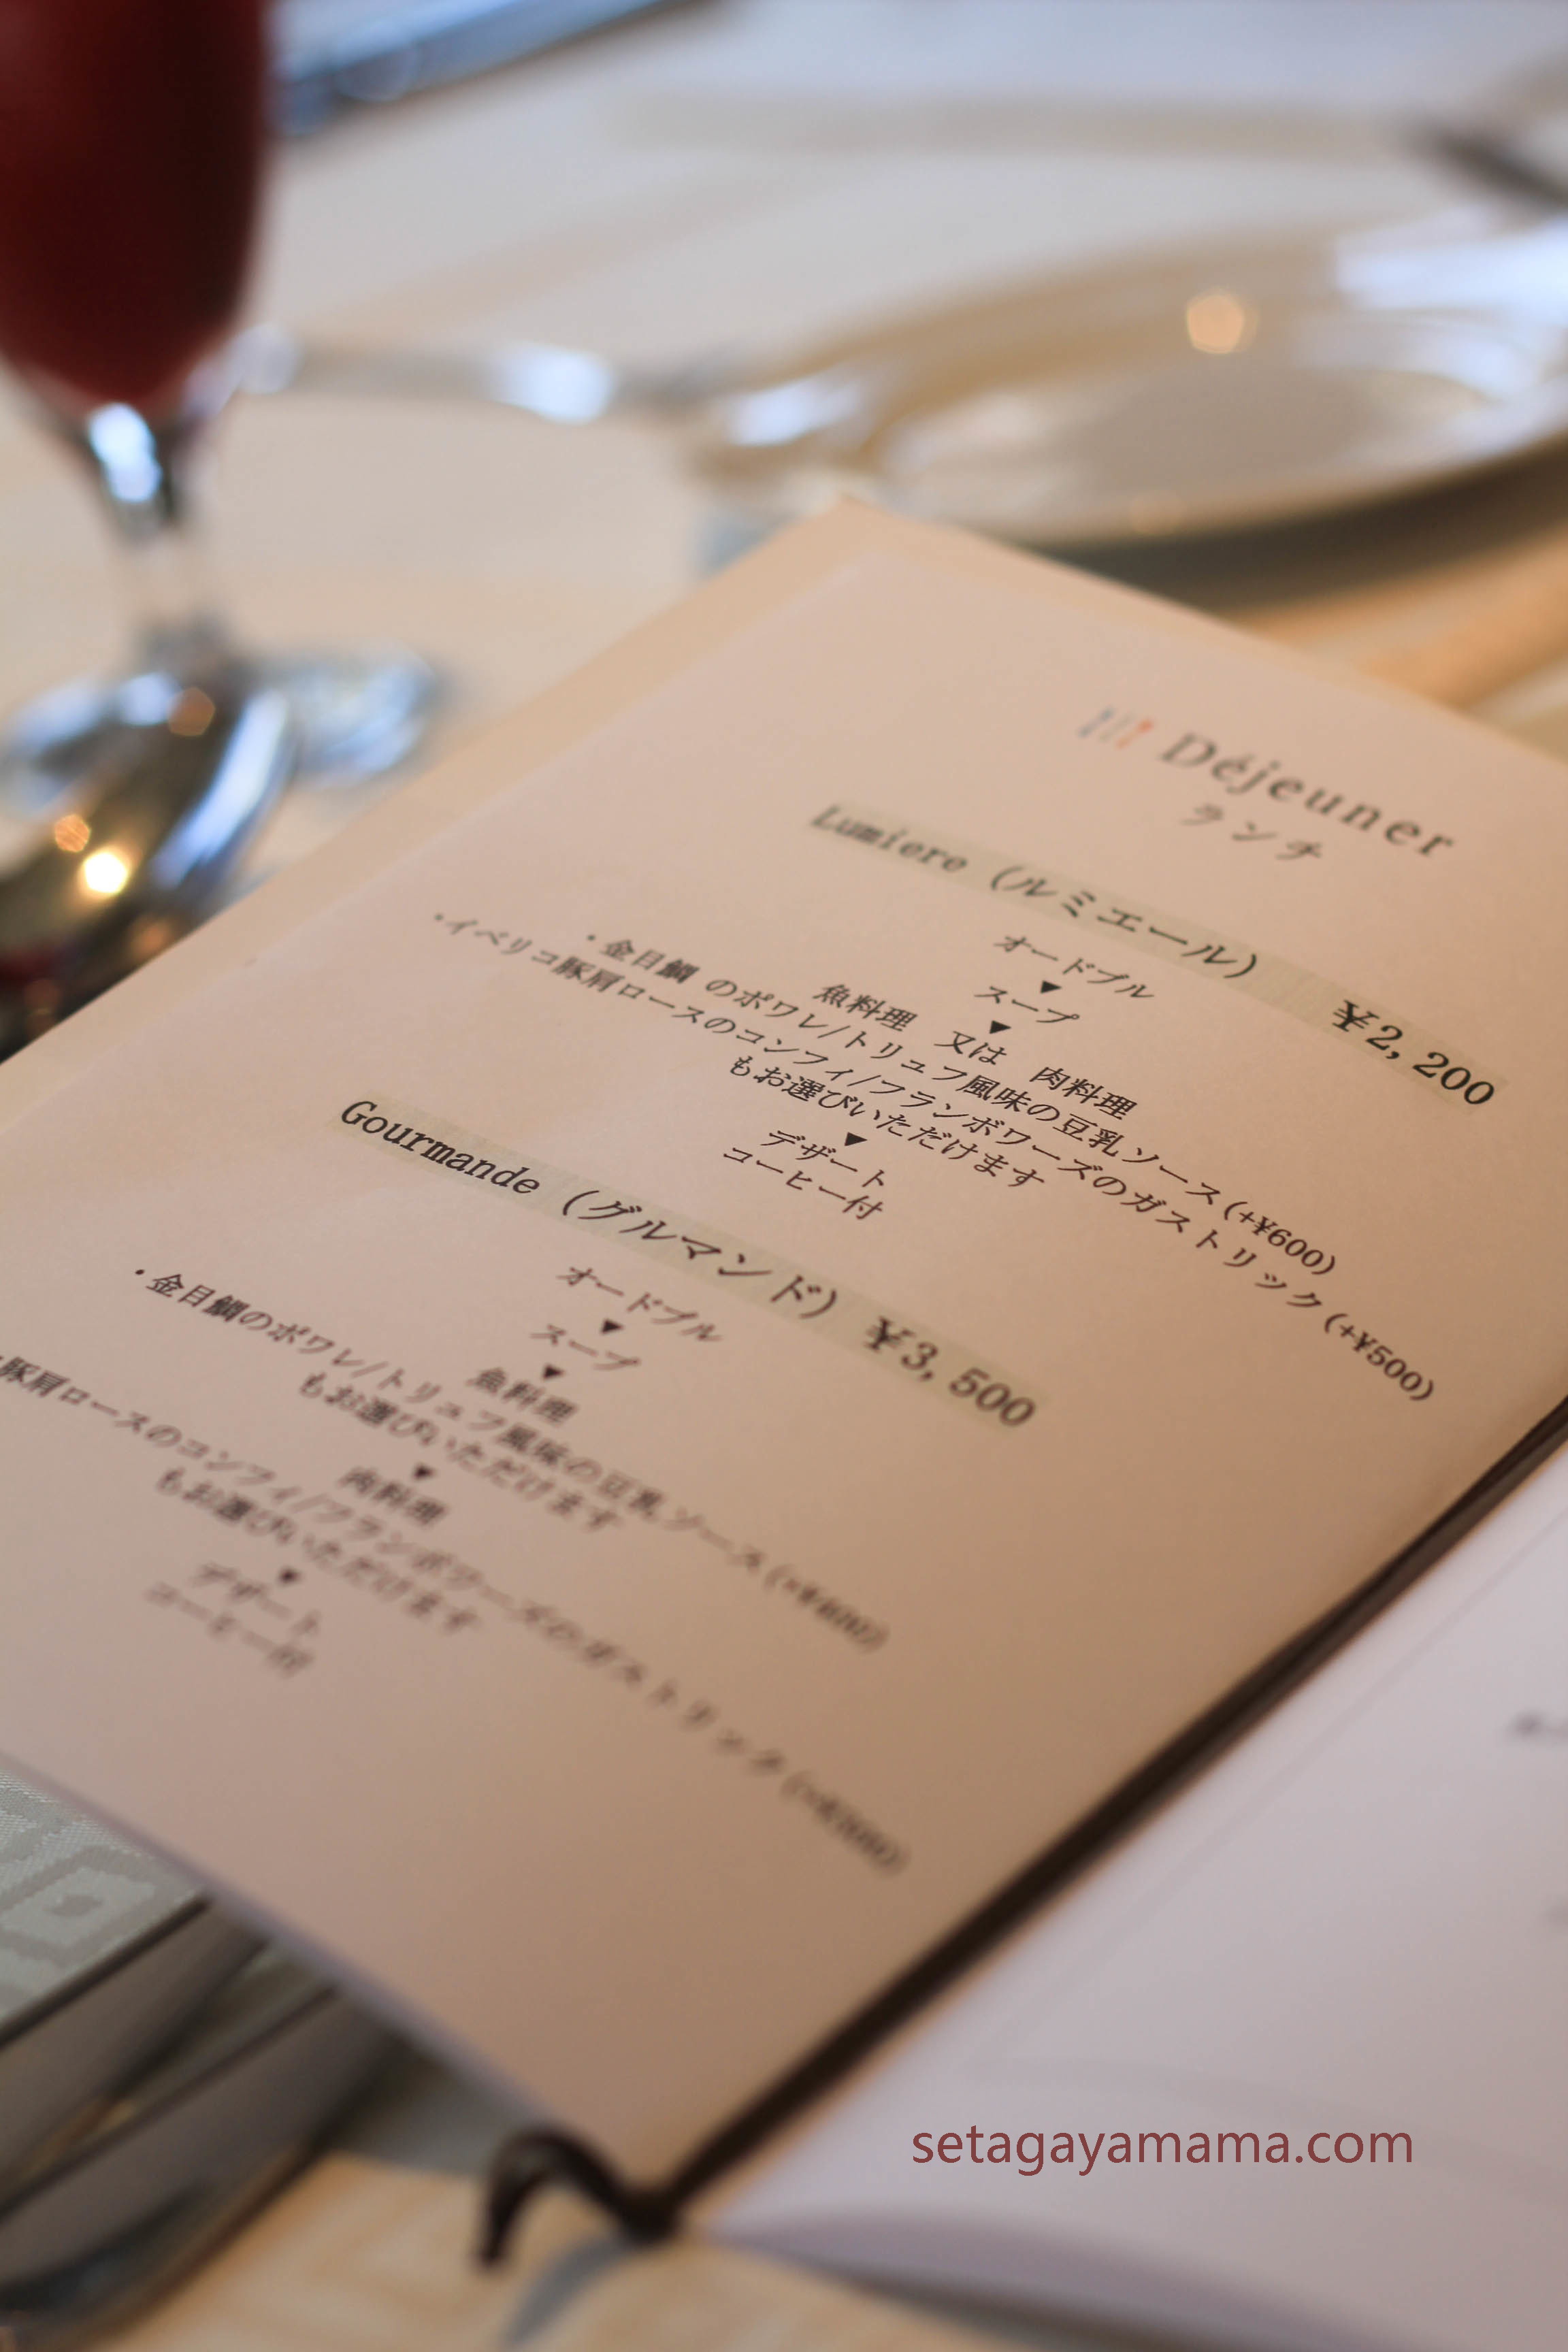 Déjeuner
ランチ
Lumiere (ルミエール) ¥2,200
オードブル
▼
スープ
▼
魚料理 又は 肉料理
・金目鯛 のポワレ/トリュフ風味の豆乳ソース(+¥600)
・イベリコ豚肩ロースのコンフィ/フランボワーズのガストリック(+¥500)
もお選びいただけます
▼
デザート
コーヒー付
Gourmande (グルマンド) ¥3,500
オードブル
▼
スープ
▼
魚料理
・金目鯛のポワレ/トリュフ風味の豆乳ソース
もお選びいただけます
▼
肉料理
豚肩ロースのコンフィ/フランボワーズのガストリック
もお選びいただけます
▼
デザート
コーヒー付
setagayamama.com